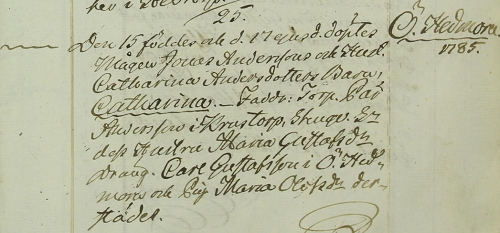 25.
Den 15 föddes och d. 17 ejusd. döptes
Ö Hedmora
1785.
Mågen Jonas Anderssons och Hust.
Catharina Andersdotters Barn,
Catharina. Faddr: Torp. Pär
Andersson i Krustorp,
dess Hustru Maria Gustafsdr
Dräng. Carl Gustafsson i Ö. Hed-
mora och Pig. Maria Olofsdr der-
städes.